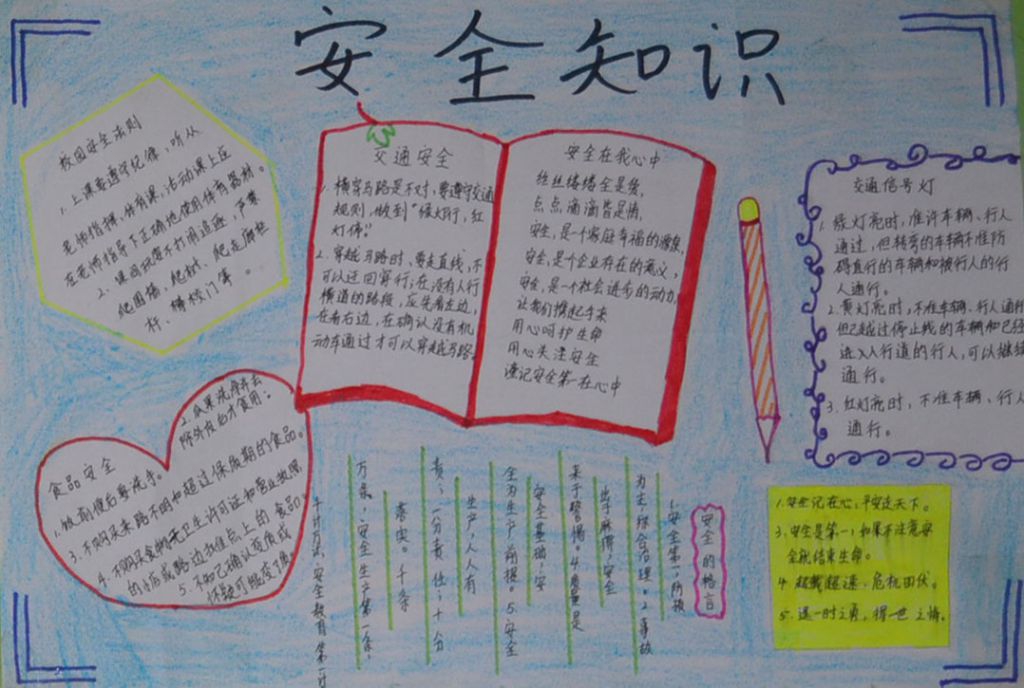 安全知识
校园安全法则
1.上课要遵守纪律,听从
老师指挥,体育课,活动课上应
在老师指导下正确地使用体育器材。
2.课间玩耍不打闹追逐,严禁
爬围墙,爬树、爬走廊栏
杆、楼校门等。
交通安全
1.横穿马路是不对,要遵守交通
规则,做到“绿灯行,红
灯停”。
2.穿越马路时,要走直线,不
可以迂回穿行;在没有人行
横道的路段,应先看左边,
在看右边,在确认没有机
动车通过才可以穿越马路。
安全在我心中
丝丝缕缕全是爱,
点点滴滴皆是情,
安全,是一个家庭幸福的源泉,
安全,是个企业存在的意义,
安全,是一个社会进步的动力,
让我们携起手来
用心呵护生命
用心关注安全
谨记安全第一在心中
交通信号灯
1.绿灯亮时,准许车辆、行人
通过,但转弯的车辆不准防
碍直行的车辆和被行人的行
人通行。
2.黄灯亮时,不准车辆、行人通行
但已越过停止线的车辆和已经
进入人行道的行人,可以继续
通行。
3.红灯亮时,不准车辆、行人
通行。
食品安全
1.饭前便后要洗手。
2.瓜果洗净并去
除外皮后才食用;
3.不购买来路不明和超过保质期的食品。
4.不购买食物无卫生许可证和营业执照
的小店或路边摊位点上的食品;
5.不知己确认变质或
怀疑可能变了质
安全的格言
1.安全第一,预预
为主,综合治理。2.事故
出于麻痹,安全
来于警惕。4.质量是
安全基础,安
全为生产前提。5.安全
生产,人人有
责;一分责任;十分
落实。千条
万条,安全生产第一条;
千计万计,安全教育第一计
1.安全记在心,平安走天下。
3.安全是第一,如果不注意安
全就结束生命。
4.超载超速、危机四伏。
5.逞一时之勇,得一世之悔。